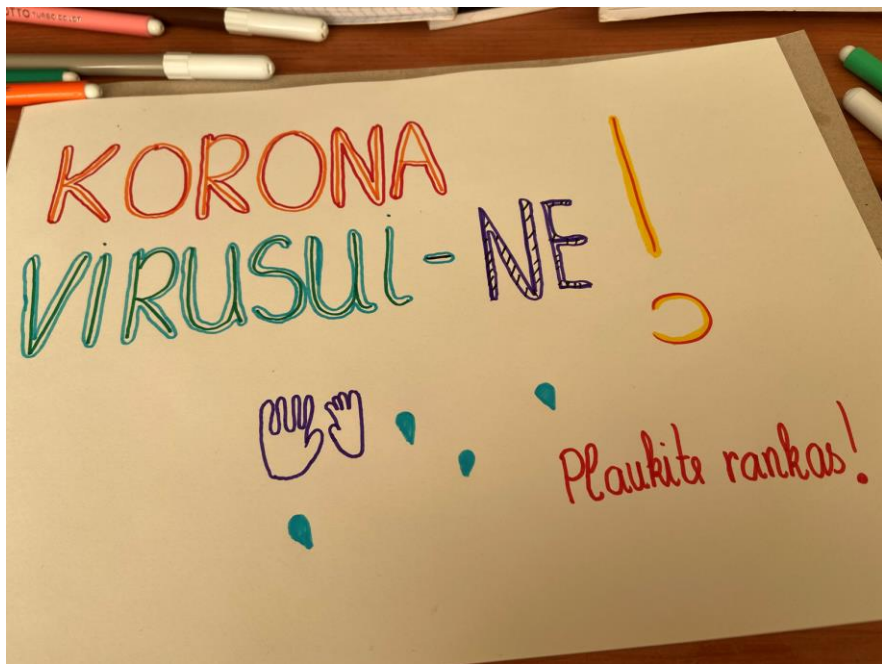 KORONA
VIRUSUI - NE!
Plaukite rankas!